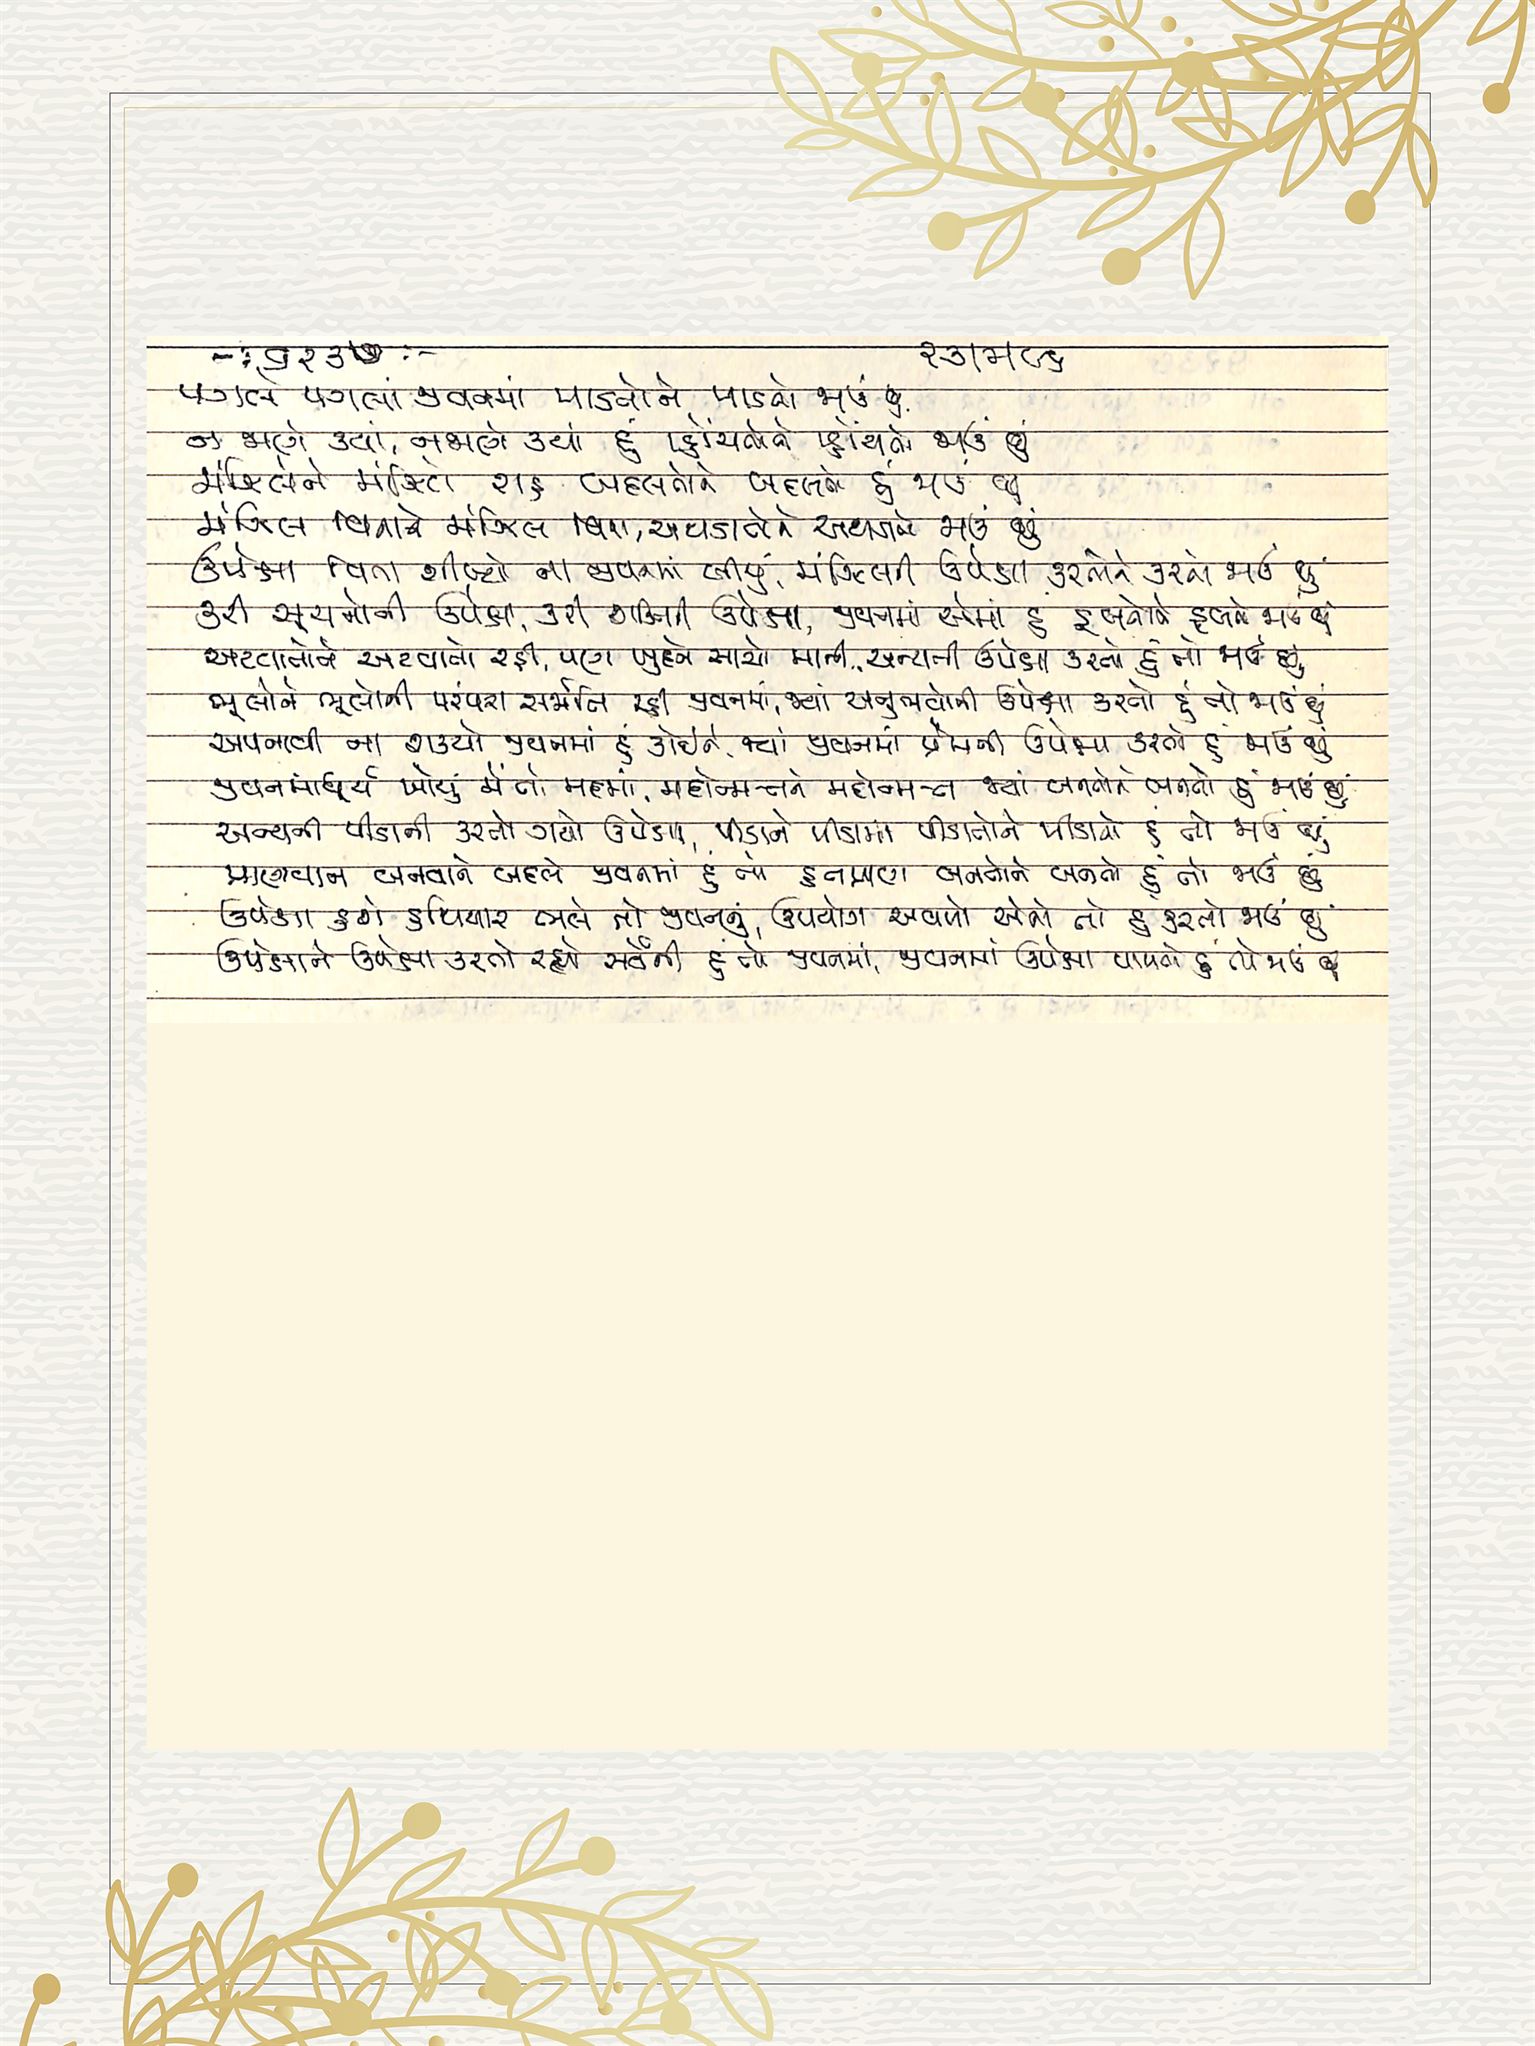 પગલે પગલાં જીવનમાં પાડતોને પાડતો જાઉં છું
ન જાણે ક્યાં, ન જાણે ક્યાં હું પહોંચતોને પહોંચતો જાઉં છું
મંઝિલેને મંઝિલે રાહ બદલતોને બદલતો હું જાઉં છું
મંઝિલ વિનાને મંઝિલ વિના, અથડાતોને અથડાતો જાઉં છું
ઉપેક્ષા વિના શીખ્યો ના જીવનમાં બીજું, મંઝિલની ઉપેક્ષા કરતોને કરતો જાઉં છું
કરી સૂચનોની ઉપેક્ષા, કરી શક્તિની ઉપેક્ષા, જીવનમાં એમાં હું ડૂબતોને ડૂબતો જાઉં છું
અટવાતોને અટવાતો રહી, પણ ખુદને સાચો માની, અન્યની ઉપેક્ષા કરતો હું તો જાઉં છું
ભૂલોને ભૂલોની પરંપરા સર્જાતી રહી જીવનમાં, જ્યાં અનુભવોની ઉપેક્ષા કરતો હું તો જાઉં છું
અપનાવી ના શક્યો જીવનમાં હું કોઈને, જ્યાં જીવનમાં પ્રેમની ઉપેક્ષા કરતો હું જાઉં છું
જીવનમાધુર્ય ખોયું મેં તો મદમાં, મદોન્મત્તને મદોન્મત્ત જ્યાં બનતોને બનતો હું જાઉં છું
અન્યની પીડાની કરતો ગયો ઉપેક્ષા, પીડાને પીડામાં પીડાતોને પીડાતો હું તો જાઉં છું
પ્રાણવાન બનવાને બદલે જીવનમાં હું તો હતપ્રાણ બનતોને બનતો હું તો જાઉં છું
ઉપેક્ષા હશે હથિયાર ભલે તો જીવનનું, ઉપયોગ અવળો એનો તો હું કરતો જાઉં છું
ઉપેક્ષાને ઉપેક્ષા કરતો રહ્યો સર્વેની હું તો જીવનમાં, જીવનમાં ઉપેક્ષા પામતો હું તો જાઉં છું